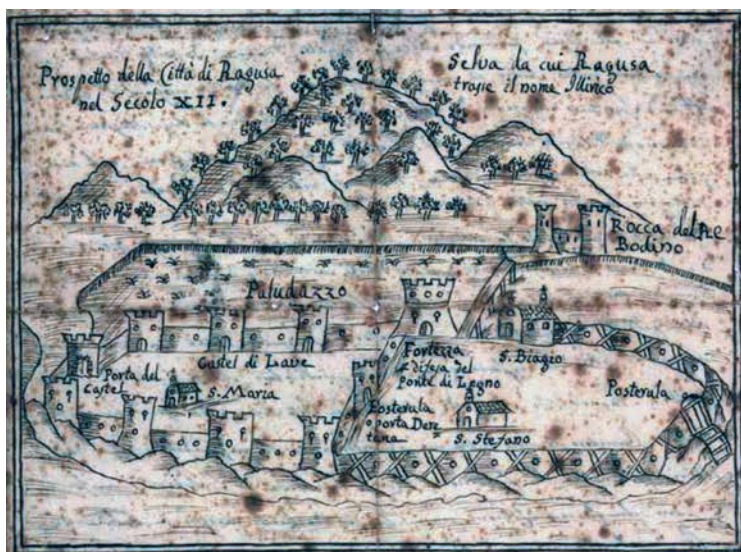 Prospetto della Città di Ragusa
nel Secolo XII.
Selva da cui Ragusa
trasse il nome Illirico
Rocca del Re
Bodino
Paludazzo
Castel di Lave
Porta del
Castel
S. Maria
Fortezza
e difesa del
ponte di Legno
S. Biagio
Posterula
Posterula
o porta Dere
tana
S. Stefano